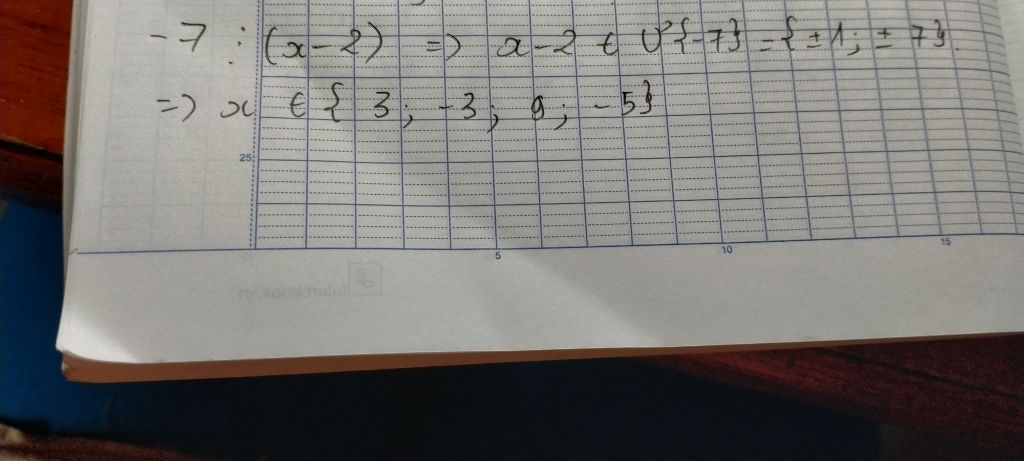 -7 ⋮ (x-2) => x-2 ∈ Ư{-7} = {±1; ±7}.
=> x ∈ { 3; -3; 9; -5}
25
5 10 15